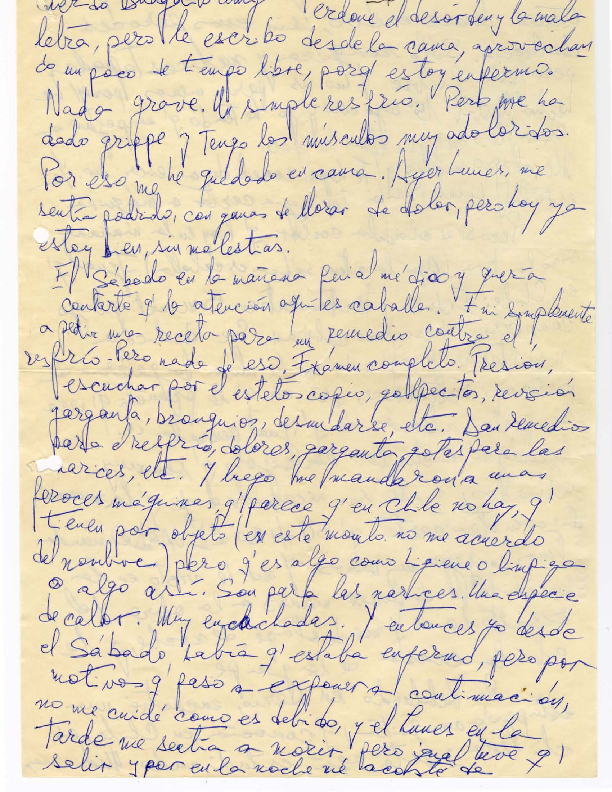 Perdone el desórden y la mala
letra, pero le escribo desde la cama, aprovechan
do un poco de tiempo libre, porq' estoy enfermo.
Nada grave. Un simple resfrío. Pero me ha
dado grippe y tengo los músculos muy adoloridos.
Por eso me he quedado en cama. Ayer Lunes, me
sentía podrido, con ganas de llorar de dolor, pero hoy ya
estoy bien, sin molestias.
El Sábado en la mañana fui al médico y quería
contarte q' la atención aquí es caballa. Fui simplemente
a pedir una receta para un remedio contra el
resfrío. Pero nada de eso. Exámen completo. Presión,
escuchar por el estetoscopio, golpecitos, revisión
garganta, bronquios, desnudarse, etc. Dan remedios
para el resfrío, dolores, garganta, gotas para las
narices, etc. Y luego me mandaron a unas
feroces máquinas, q' parece q' en Chile no hay, q'
tienen por objeto (en este momto. no me acuerdo
del nombre) pero q' es algo como higiene o limpieza
o algo así. Son para las narices. Una especie
de calor. Muy enchchadas. Y entonces yo desde
el Sábado sabía q' estaba enfermo, pero por
motivos q' paso a exponer a continuación,
no me cuidé como es debido, y el Lunes en la
tarde me sentía morir, pero igual tuve q'
salir y por en la noche me acosté